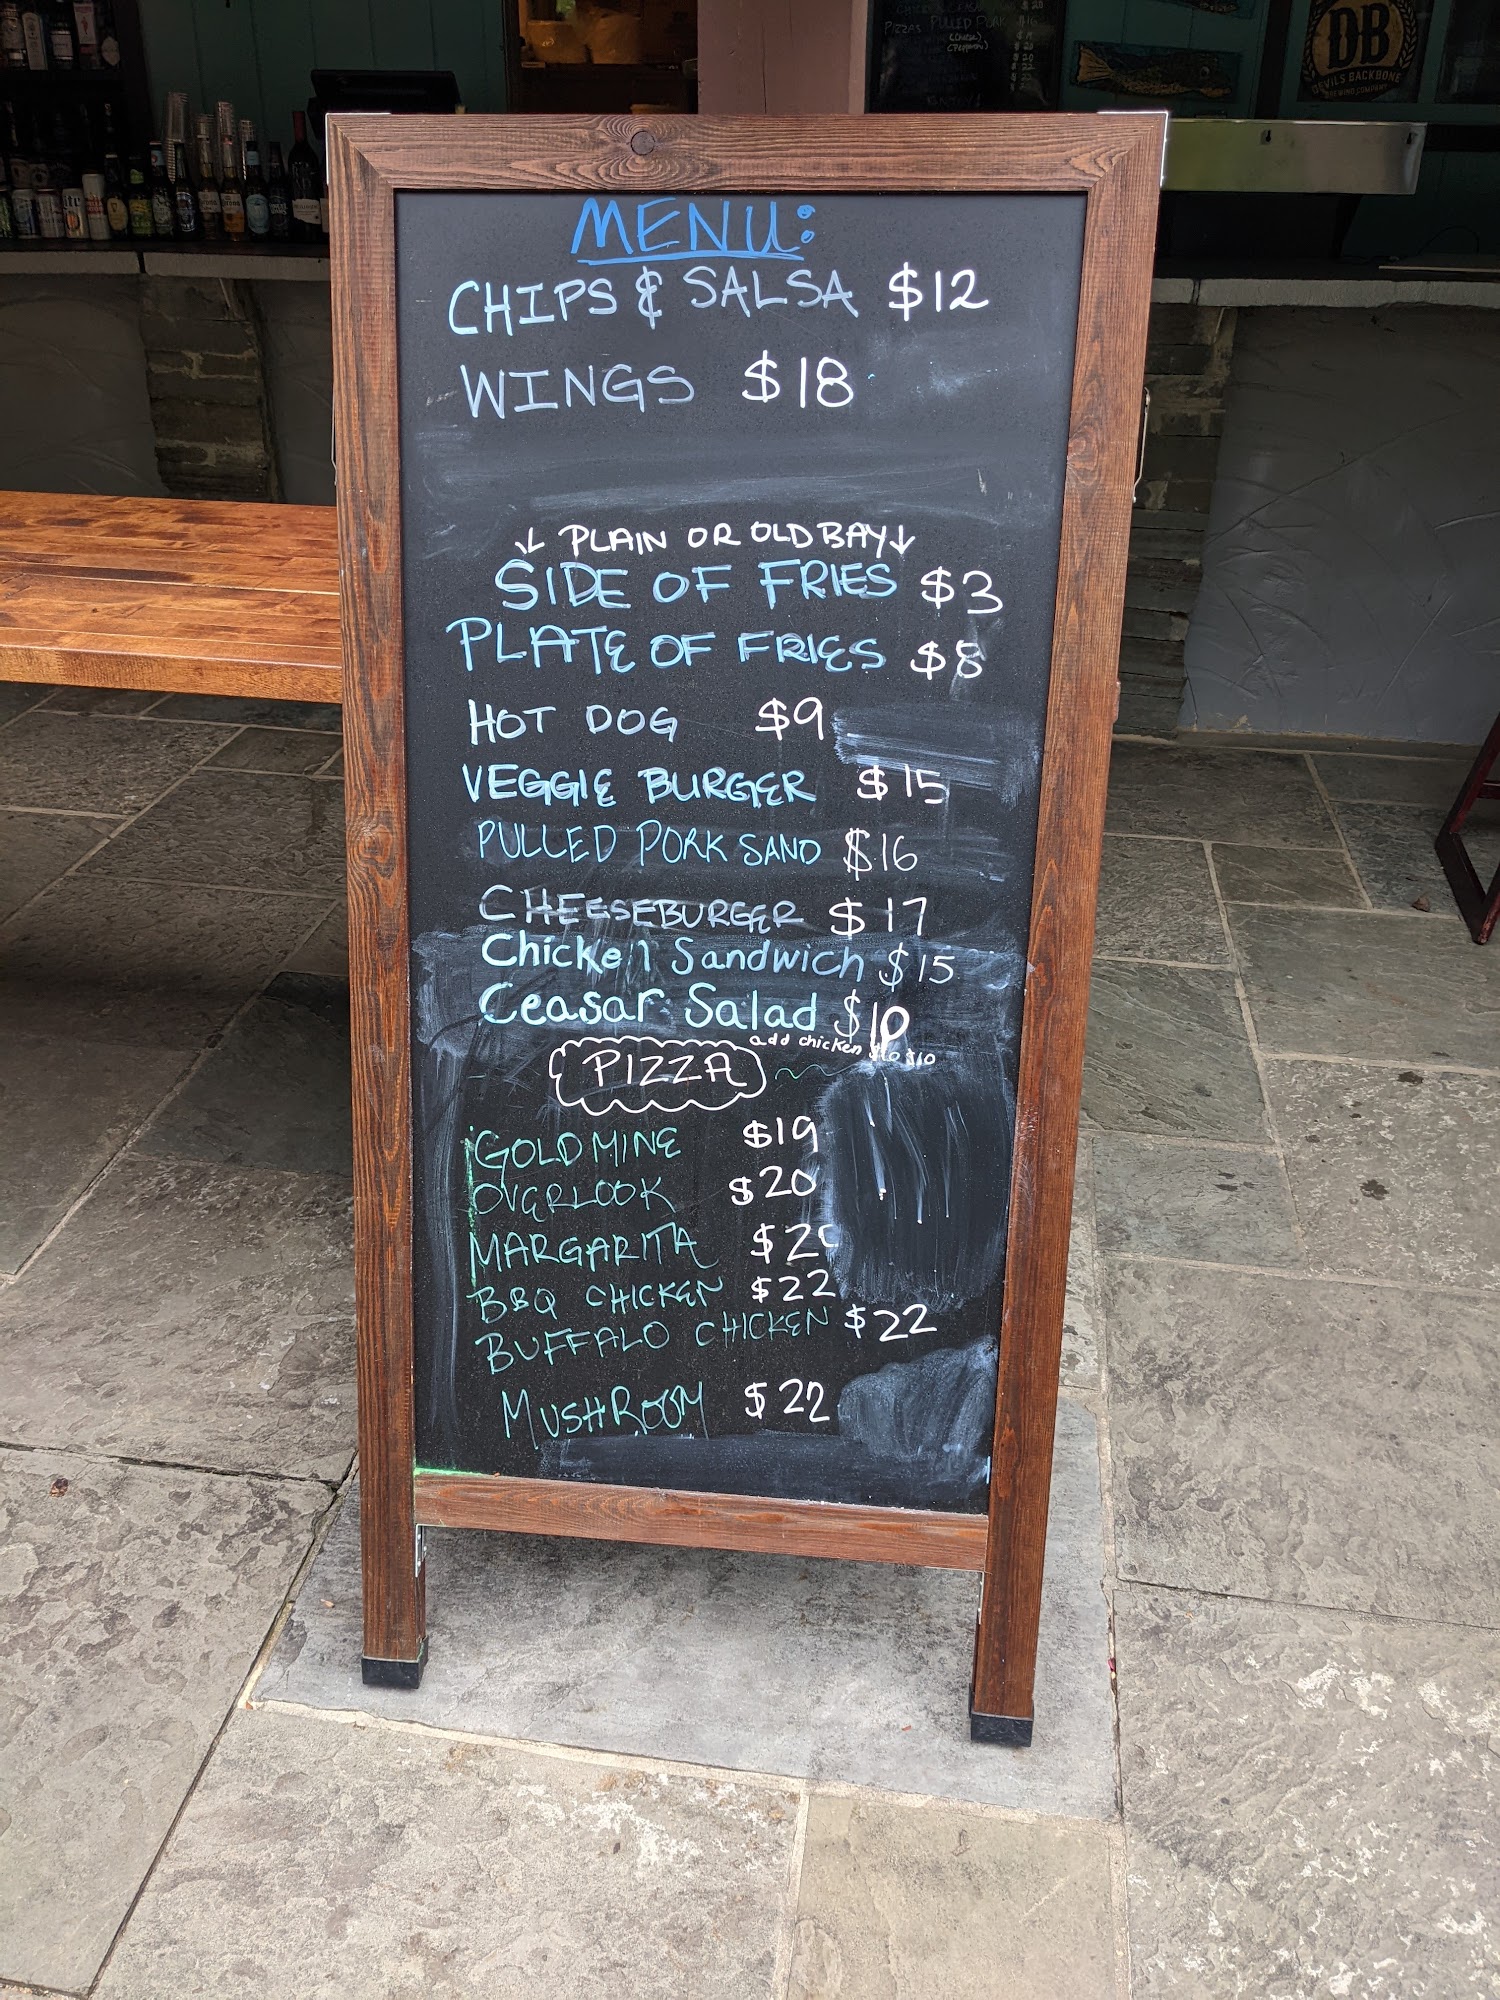 PIZZAS PULLED PORK $16
(Cheese)
(Pepperoni)
DB
DEVILS BACKBONE
BREWING COMPANY
MENU:
CHIPS & SALSA $12
WINGS $18
↓ PLAIN OR OLD BAY ↓
SIDE OF FRIES $3
PLATE OF FRIES $8
HOT DOG $9
VEGGIE BURGER $15
PULLED PORK SAND $16
CHEESEBURGER $17
Chicken Sandwich $15
Ceasar Salad $10
add chicken $10
PIZZA
GOLDMINE $19
OVERLOOK $20
MARGARITA
BBQ CHICKEN $22
BUFFALO CHICKEN $22
MUSHROOM $22